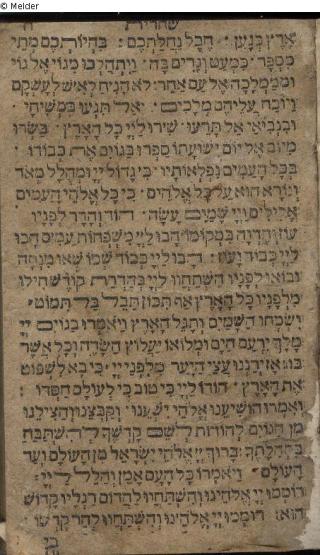 © Melder
שחרית
ארץ כנען׃ חבל נחלתכם׃ בהיותכם מתי
מספר׃ כמעט וגרים בה׃ ויתהלכו מגוי אל גוי
וממלכה אל עם אחר׃ לא הניח לאיש לעשקם
ויוכח עליהם מלכים׃ אל תגעו במשיחי
ובנביאי אל תרעו׃ שירו לייי כל הארץ׃ בשרו
מיום אל יום ישועתו ספרו בגוים את כבודו
בכל העמים נפלאותיו׃ כי גדול ייי ומהלל מאד
ונורא הוא על כל אלהים׃ כי כל אלהי העמים
אלילים וייי שמים עשה׃ הוד והדר לפניו
עוז וחדוה במקומו׃ הבו לייי משפחות עמים הבו
לייי כבוד ועוז׃ הבו לייי כבוד שמו שאו מנחה
ובואו לפניו השתחוו לייי בהדרת קודש חילו
מלפניו כל הארץ אף תכון תבל בל תמוט׃
ישמחו השמים ותגל הארץ ויאמרו בגוים ייי
מלך ירעם הים ומלואו יעלוץ השדה וכל אשר
בו׃ אז ירננו עצי היער מלפני ייי כי בא לשפוט
את הארץ׃ הודו לייי כי טוב כי לעולם חסדו
ואמרו הושיענו אלהי ישענו וקבצנו והצילנו
מן הגוים להודות לשם קדשך להשתבח
בתהלתך׃ ברוך ייי אלהי ישראל מן העולם ועד
העולם׃ ויאמרו כל העם אמן והלל לייי׃
רוממו ייי אלהינו והשתחוו להדום רגליו קדוש
הוא׃ רוממו ייי אלהינו והשתחוו להר קדשו
כי